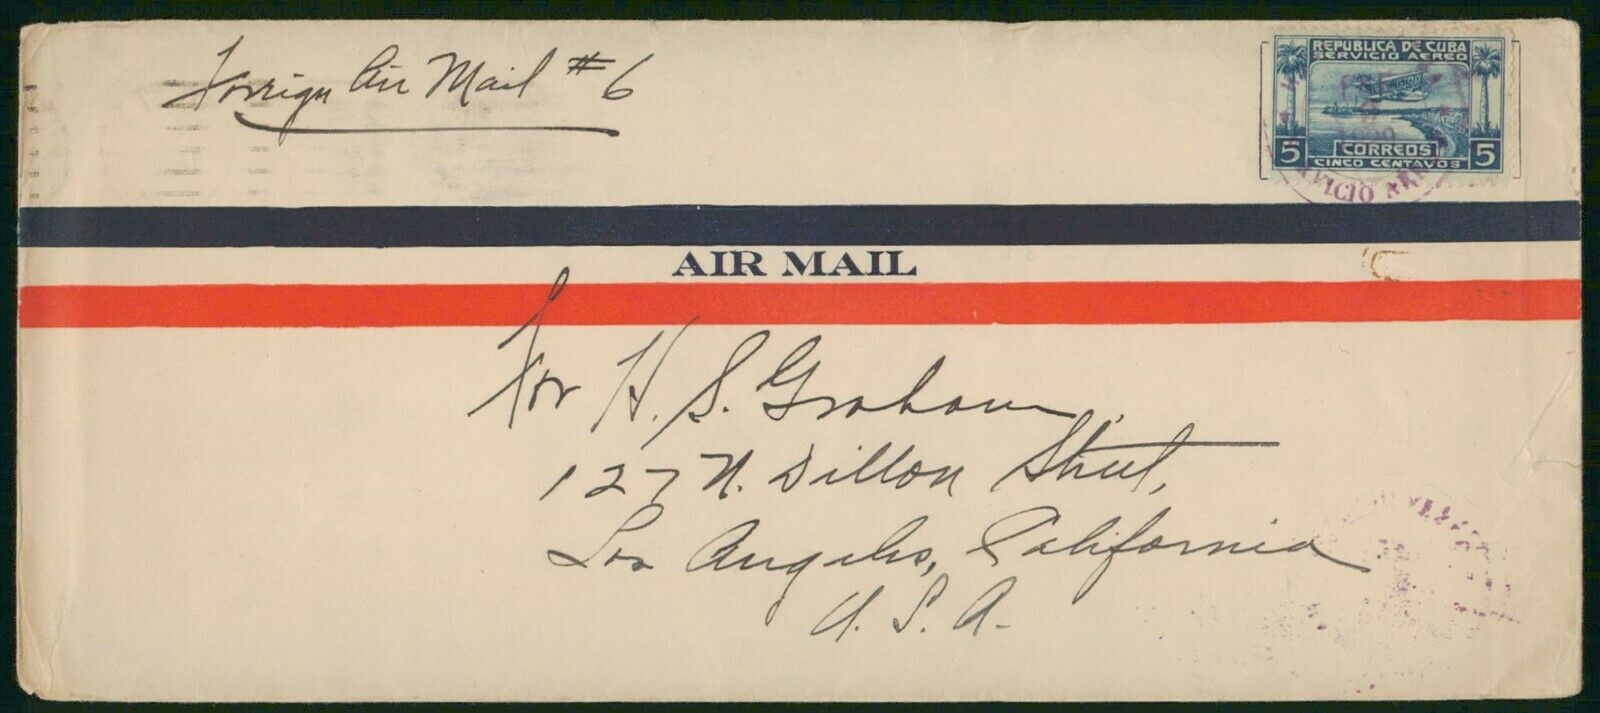 Foreign Air Mail #6
REPUBLICA DE CUBA
SERVICIO AEREO
5 CORREOS 5
CINCO CENTAVOS
AIR MAIL
For H. S. Graham,
127 N. Dillon Street,
Los Angeles, California
U. S. A.